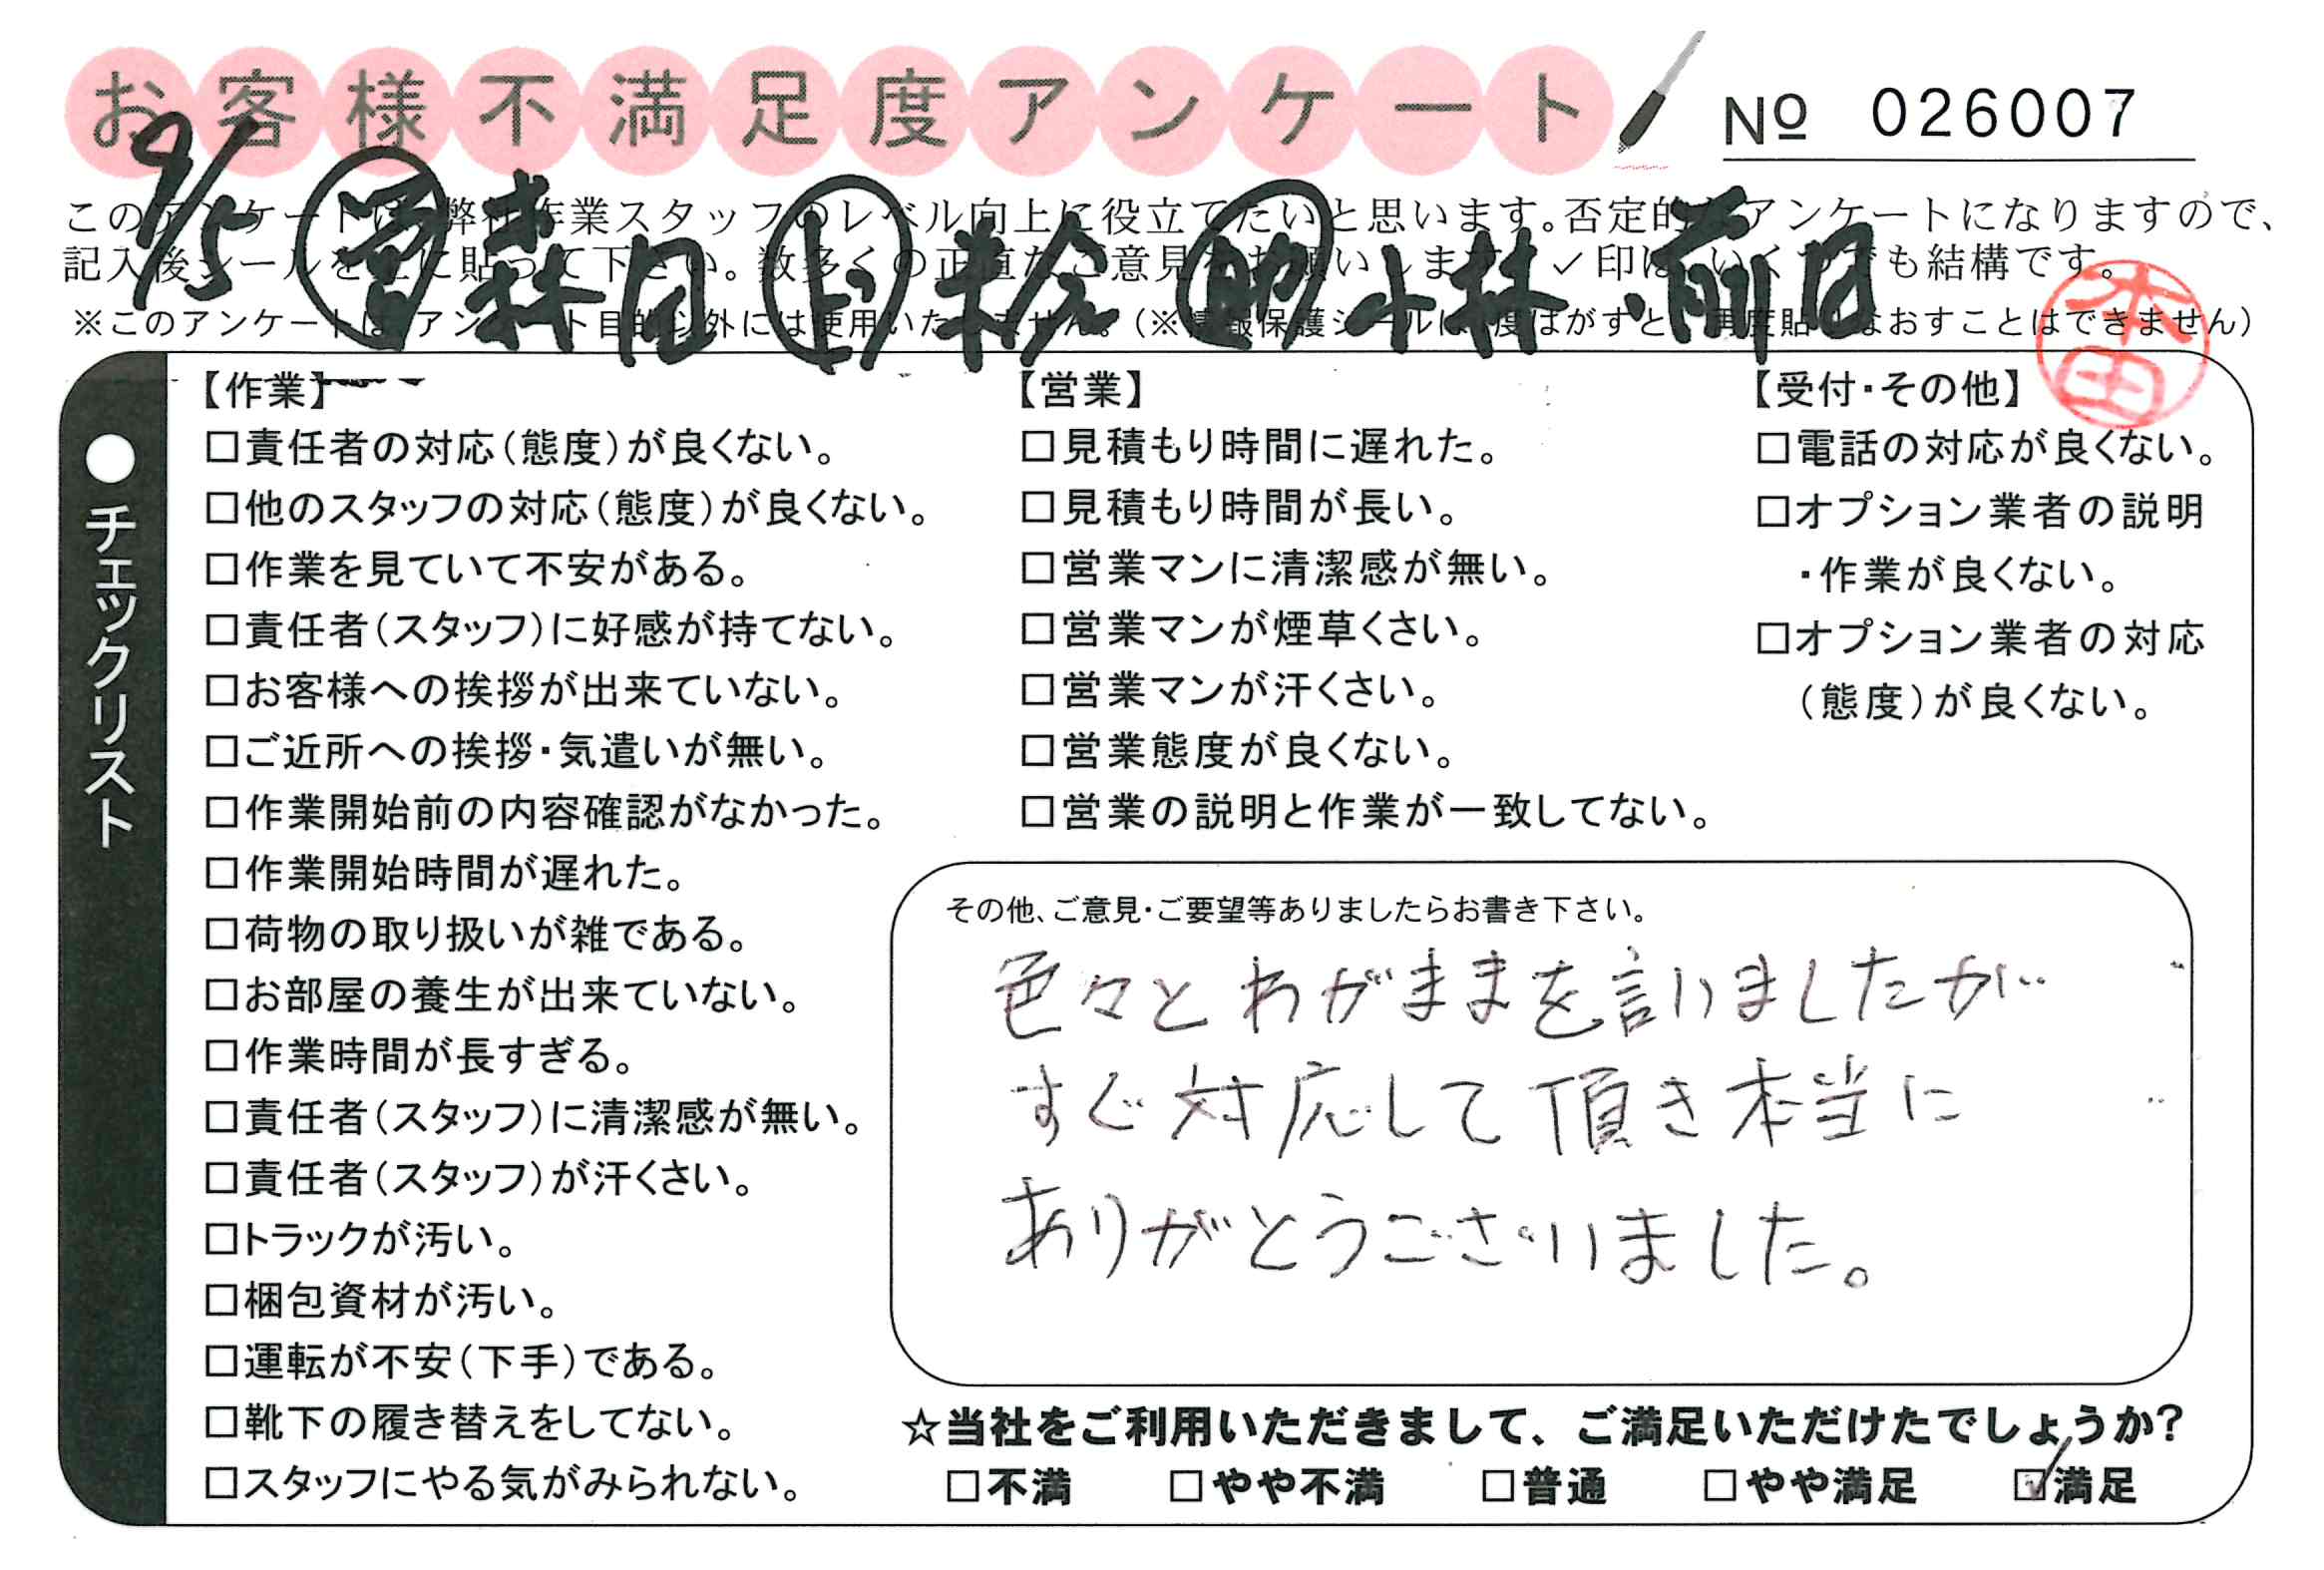 お客様不満足度アンケート
№ 026007
9/5 営 森田 ド 米倉 助 小林・前田
このアンケートは、弊社作業スタッフのレベル向上に役立てたいと思います。否定的なアンケートになりますので、
記入後シールを上に貼って下さい。数多くの正直なご意見をお願いします。✓印は、いくつでも結構です。
※このアンケートは、アンケート目的以外には使用いたしません。(※情報保護シールは1度はがすと、再度貼りなおすことはできません)
本田
●チェックリスト
【作業】
□責任者の対応(態度)が良くない。
□他のスタッフの対応(態度)が良くない。
□作業を見ていて不安がある。
□責任者(スタッフ)に好感が持てない。
□お客様への挨拶が出来ていない。
□ご近所への挨拶・気遣いが無い。
□作業開始前の内容確認がなかった。
□作業開始時間が遅れた。
□荷物の取り扱いが雑である。
□お部屋の養生が出来ていない。
□作業時間が長すぎる。
□責任者(スタッフ)に清潔感が無い。
□責任者(スタッフ)が汗くさい。
□トラックが汚い。
□梱包資材が汚い。
□運転が不安(下手)である。
□靴下の履き替えをしてない。
□スタッフにやる気がみられない。
【営業】
□見積もり時間に遅れた。
□見積もり時間が長い。
□営業マンに清潔感が無い。
□営業マンが煙草くさい。
□営業マンが汗くさい。
□営業態度が良くない。
□営業の説明と作業が一致してない。
【受付・その他】
□電話の対応が良くない。
□オプション業者の説明
・作業が良くない。
□オプション業者の対応
(態度)が良くない。
その他、ご意見・ご要望等ありましたらお書き下さい。
色々とわがままを言いましたが
すぐ対応して頂き本当に
ありがとうございました。
☆当社をご利用いただきまして、ご満足いただけたでしょうか?
□不満 □やや不満 □普通 □やや満足 ☑満足